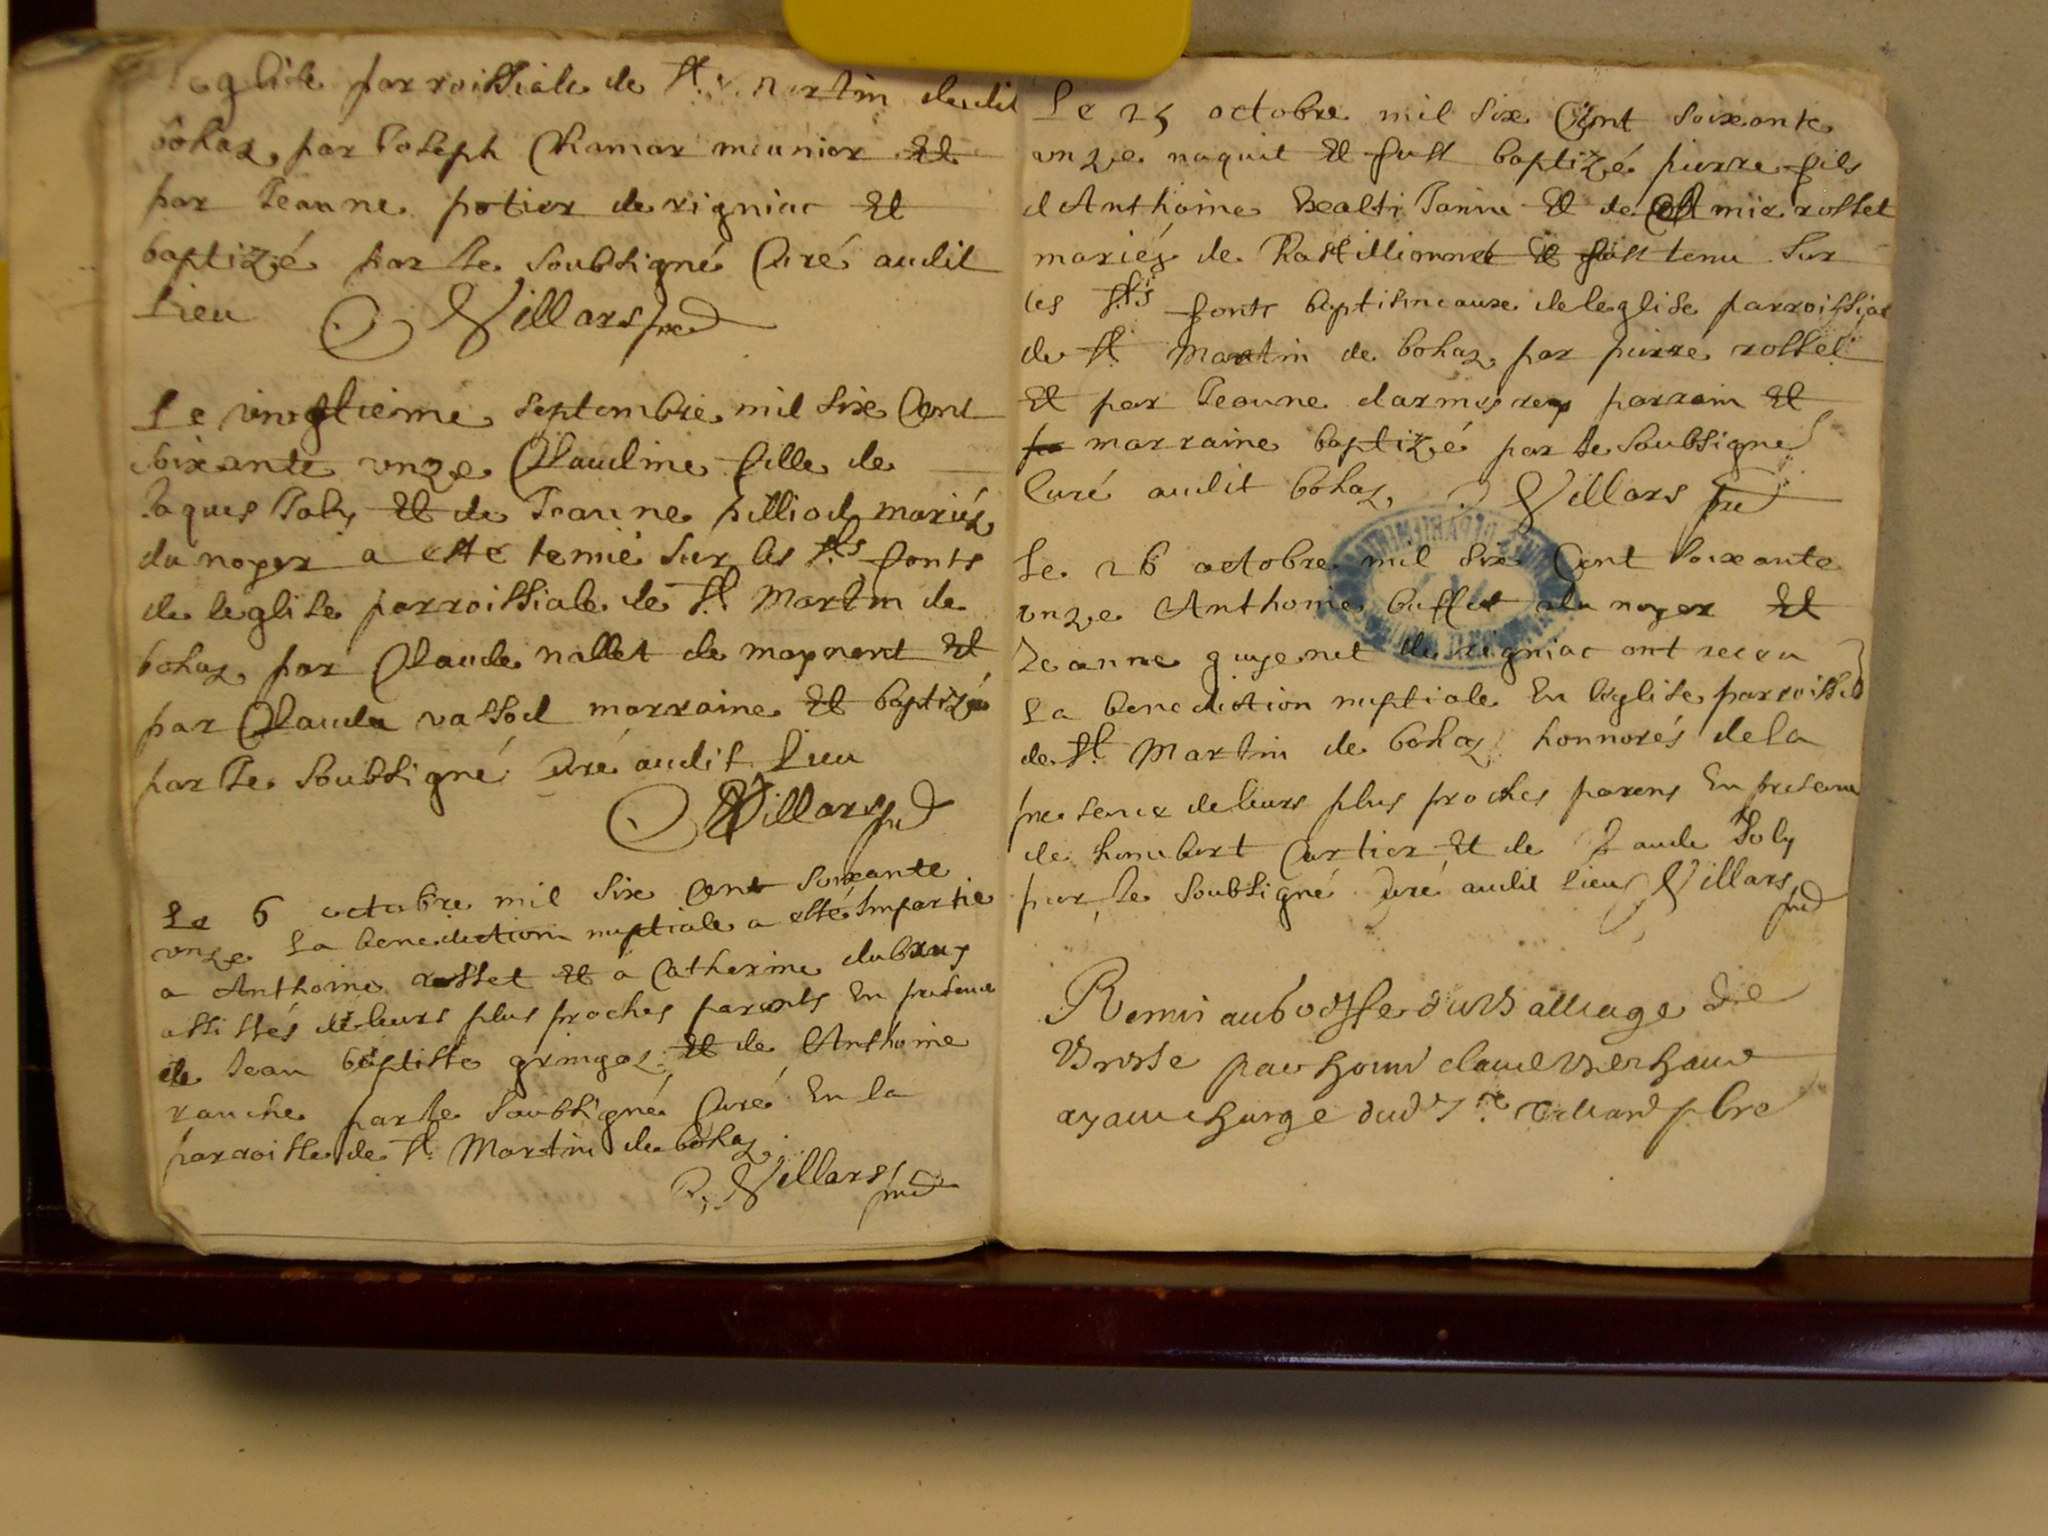 eglise parroissiale de St. martin dudit
bohaz, par Joseph Chamar meunier Et
par Jeanne potier de rigniac Et
baptizé par Le Soubsigné Curé audit
Lieu Villars pre
Le vingtieme septembre mil six Cent
soixante unze Claudine fille de
Jaques Joly Et de Jeanne pilliod mariés
du noyer a esté tenue sur les Sts fonts
de leglise parroissiale de St Martin de
bohaz par Claude nallet de maynard Et
par Clauda vassod marraine Et baptizée
par Le Soubsigné Curé audit Lieu
Villars pre
Le 6 octobre mil six Cent soixante
unze La benediction nuptiale a esté Impartie
a Anthoine rosset Et a Catherine dubruy
assistés de leurs plus proches parents En presence
de Jean baptiste gringoz Et de Anthoine
ranche par Le Soubsigné Curé En la
parroisse de St Martin de bohaz
Villars pre
Le 25 octobre mil six Cent soixante
unze naquit Et fust baptizé pierre fils
d Anthoine Et de mie rosset
mariés de Et fust tenu Sur
les Sts fonts baptismeaux de leglise parroissial
de St Martin de bohaz par pierre rosset
Et par Jeanne parrain Et
par marraine baptizé par Le Soubsigne
Curé audit bohaz Villars pre
Le 26 octobre mil six Cent soixante
unze Anthoine buffet du noyer Et
Jeanne guyenet de rigniac ont receu
La benediction nuptiale En leglise parroissial
de St Martin de bohaz honnorés de la
presence de leurs plus proches parens En presence
de humbert Cartier Et de Claude Joly
par Le Soubsigné Curé audit Lieu Villars pre
Remis au de
par claude
charge dud pbre